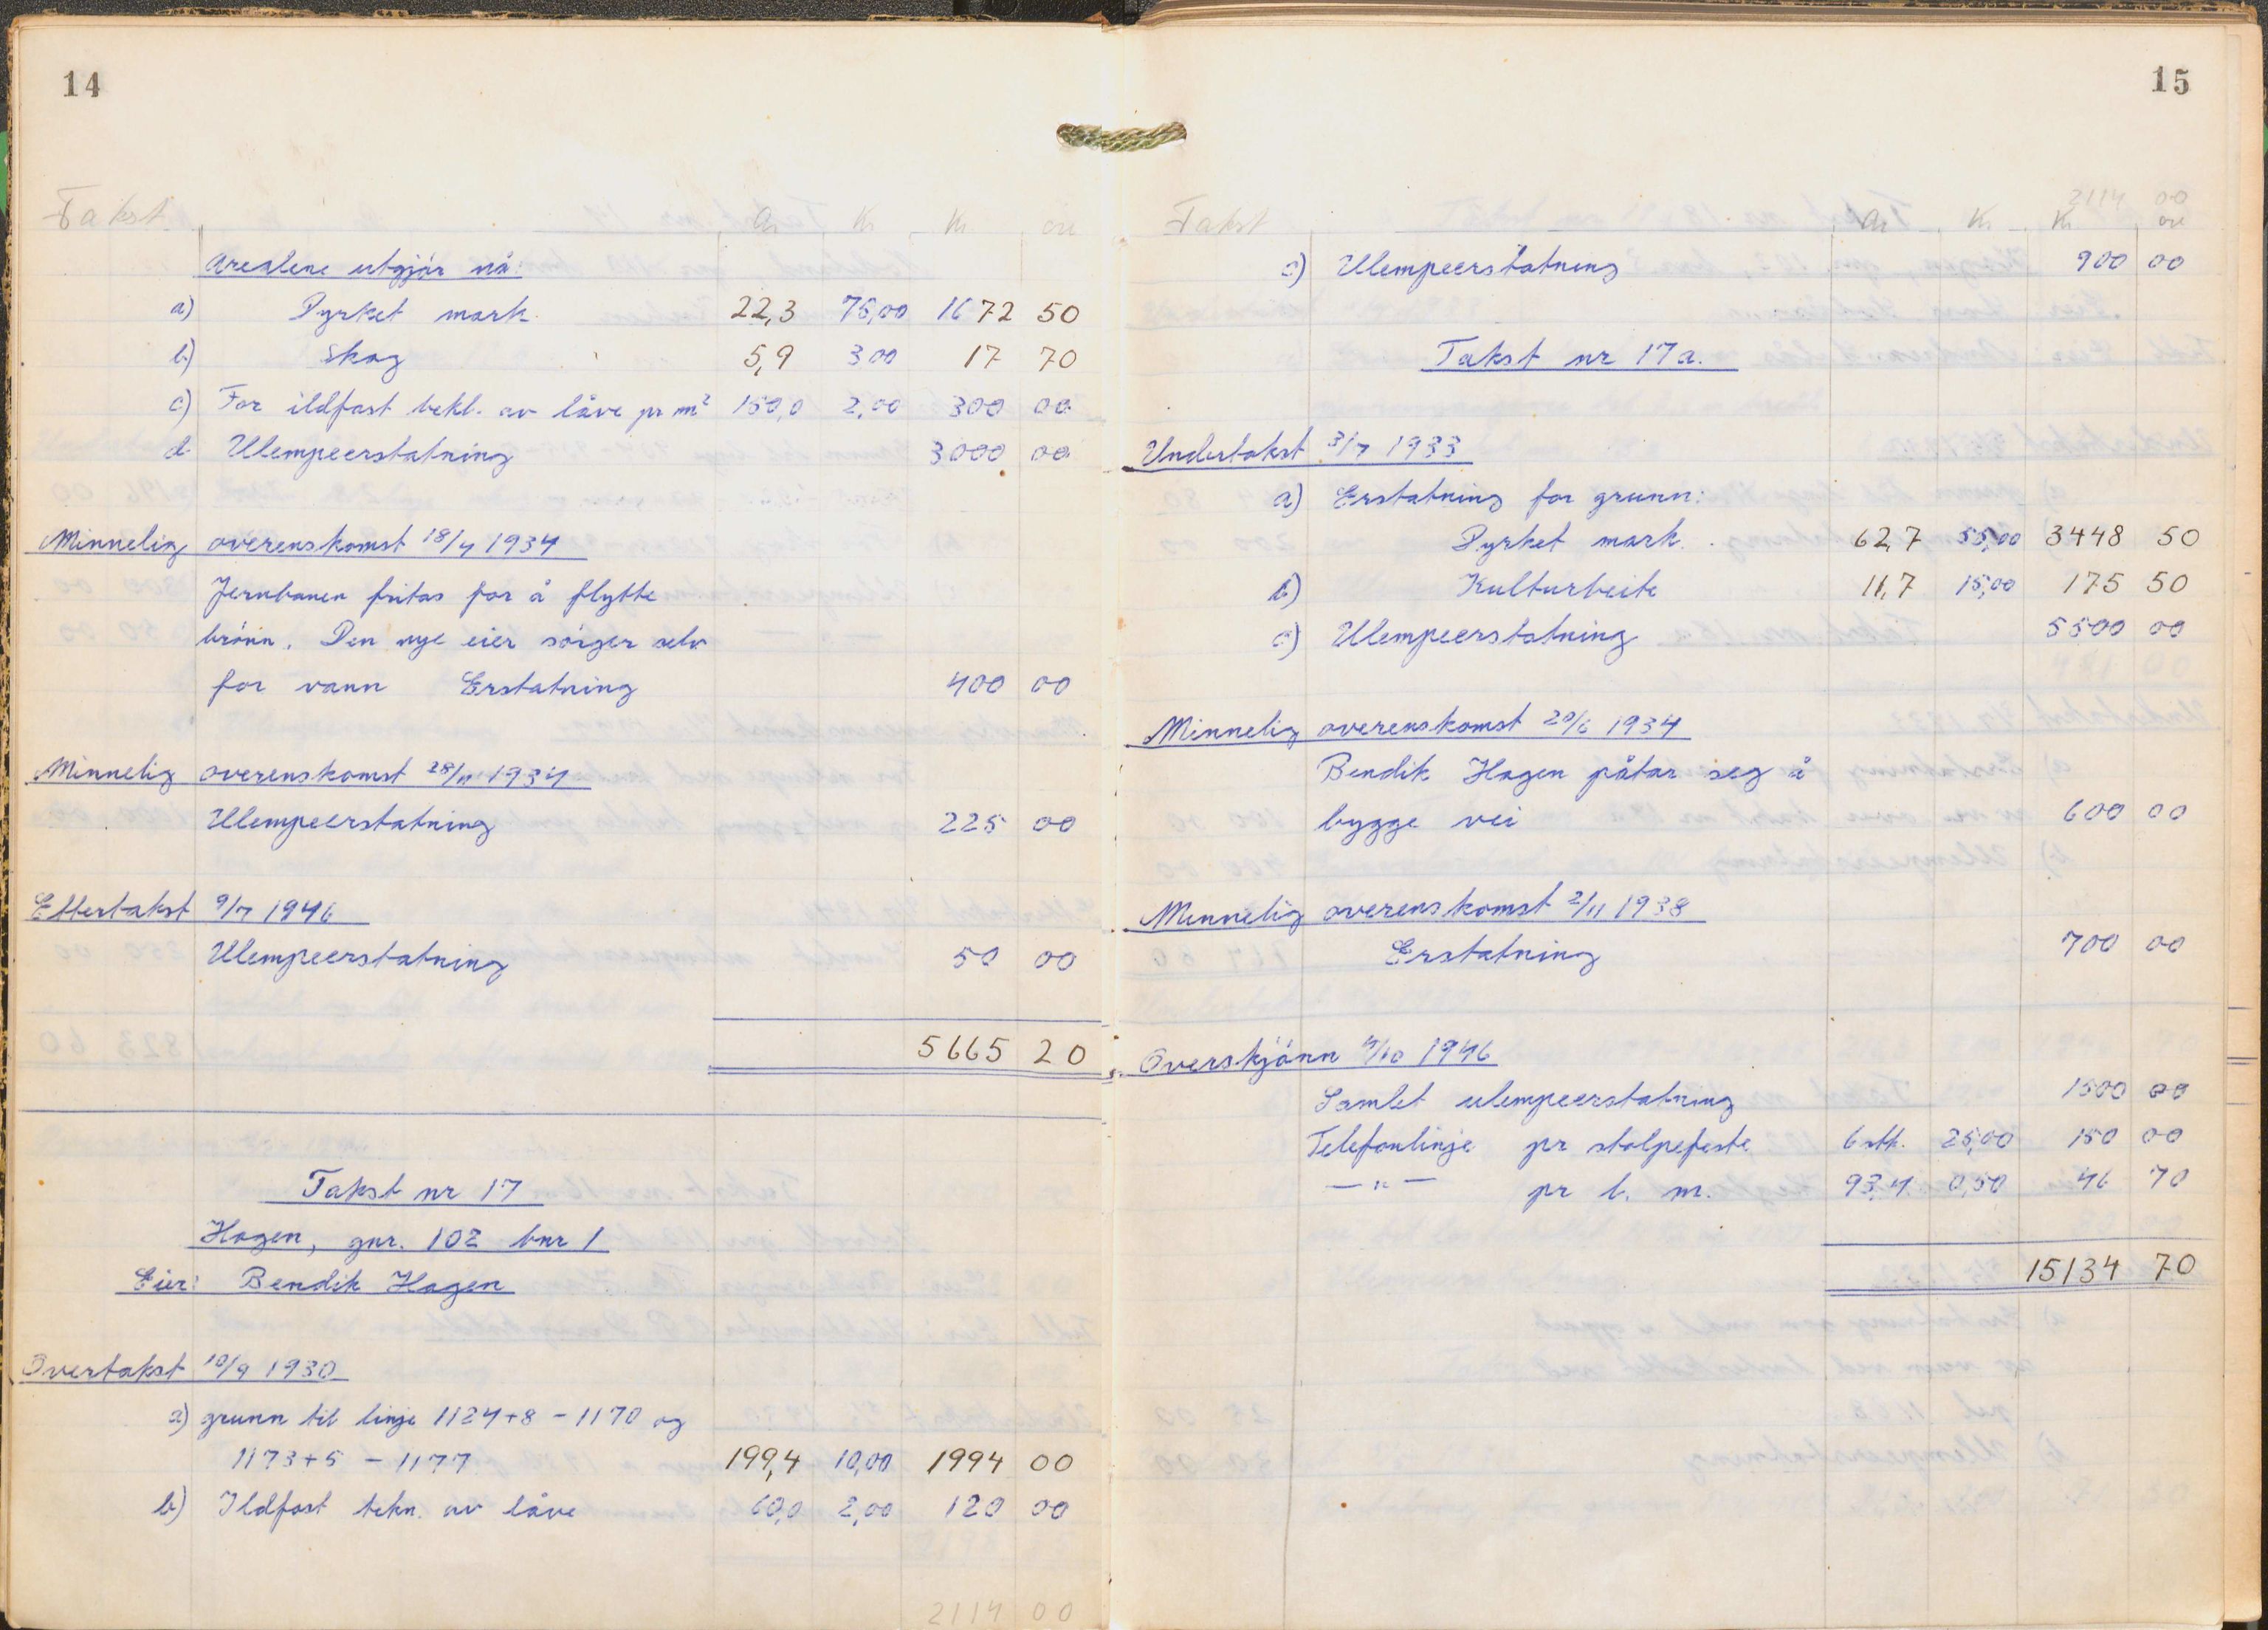 14
Takst. Ar Kr Kr øre
Arealene utgjør nå:
a) Dyrket mark. 22,3 75,00 1672 50
b) Skog 5,9 3 00 17 70
c) For ildfast bekl. av låve pr m² 150,0 2,00 300 00
d Ulempeerstatning 3000 00
Minnelig overenskomst 18/4 1934
Jernbanen fritas for å flytte
brønn. Den nye eier sørger selv
for vann Erstatning 400 00
Minnelig overenskomst 28/11 1934
Ulempeerstatning 225 00
Ettertakst 9/7 1946
Ulempeerstatning 50 00
5665 20
Takst nr 17
Hagen, gnr. 102 bnr 1
Eier: Bendik Hagen
Overtakst 10/9 1930
a) grunn til linje 1124+8 - 1170 og
1173+5 - 1177 199,4 10,00 1994 00
b) Ildfast tekn. av låve 60,0 2,00 120 00
2114 00
15
2114 00
Takst Ar Kr Kr øre
c) Ulempeerstatning 900 00
Takst nr 17a.
Undertakst 3/7 1933
a) Erstatning for grunn:
Dyrket mark. 62,7 55,00 3448 50
b) Kulturbeite 11,7 15,00 175 50
c) Ulempeerstatning 5500 00
Minnelig overenskomst 20/6 1934
Bendik Hagen påtar seg å
bygge vei 600 00
Minnelig overenskomst 2/11 1938
Erstatning 700 00
Overskjønn 4/10 1946
Samlet ulempeerstatning 1500 00
Telefonlinje pr stolpefeste 6 stk. 25,00 150 00
— " — pr l. m. 93,4 0,50 46 70
15134 70